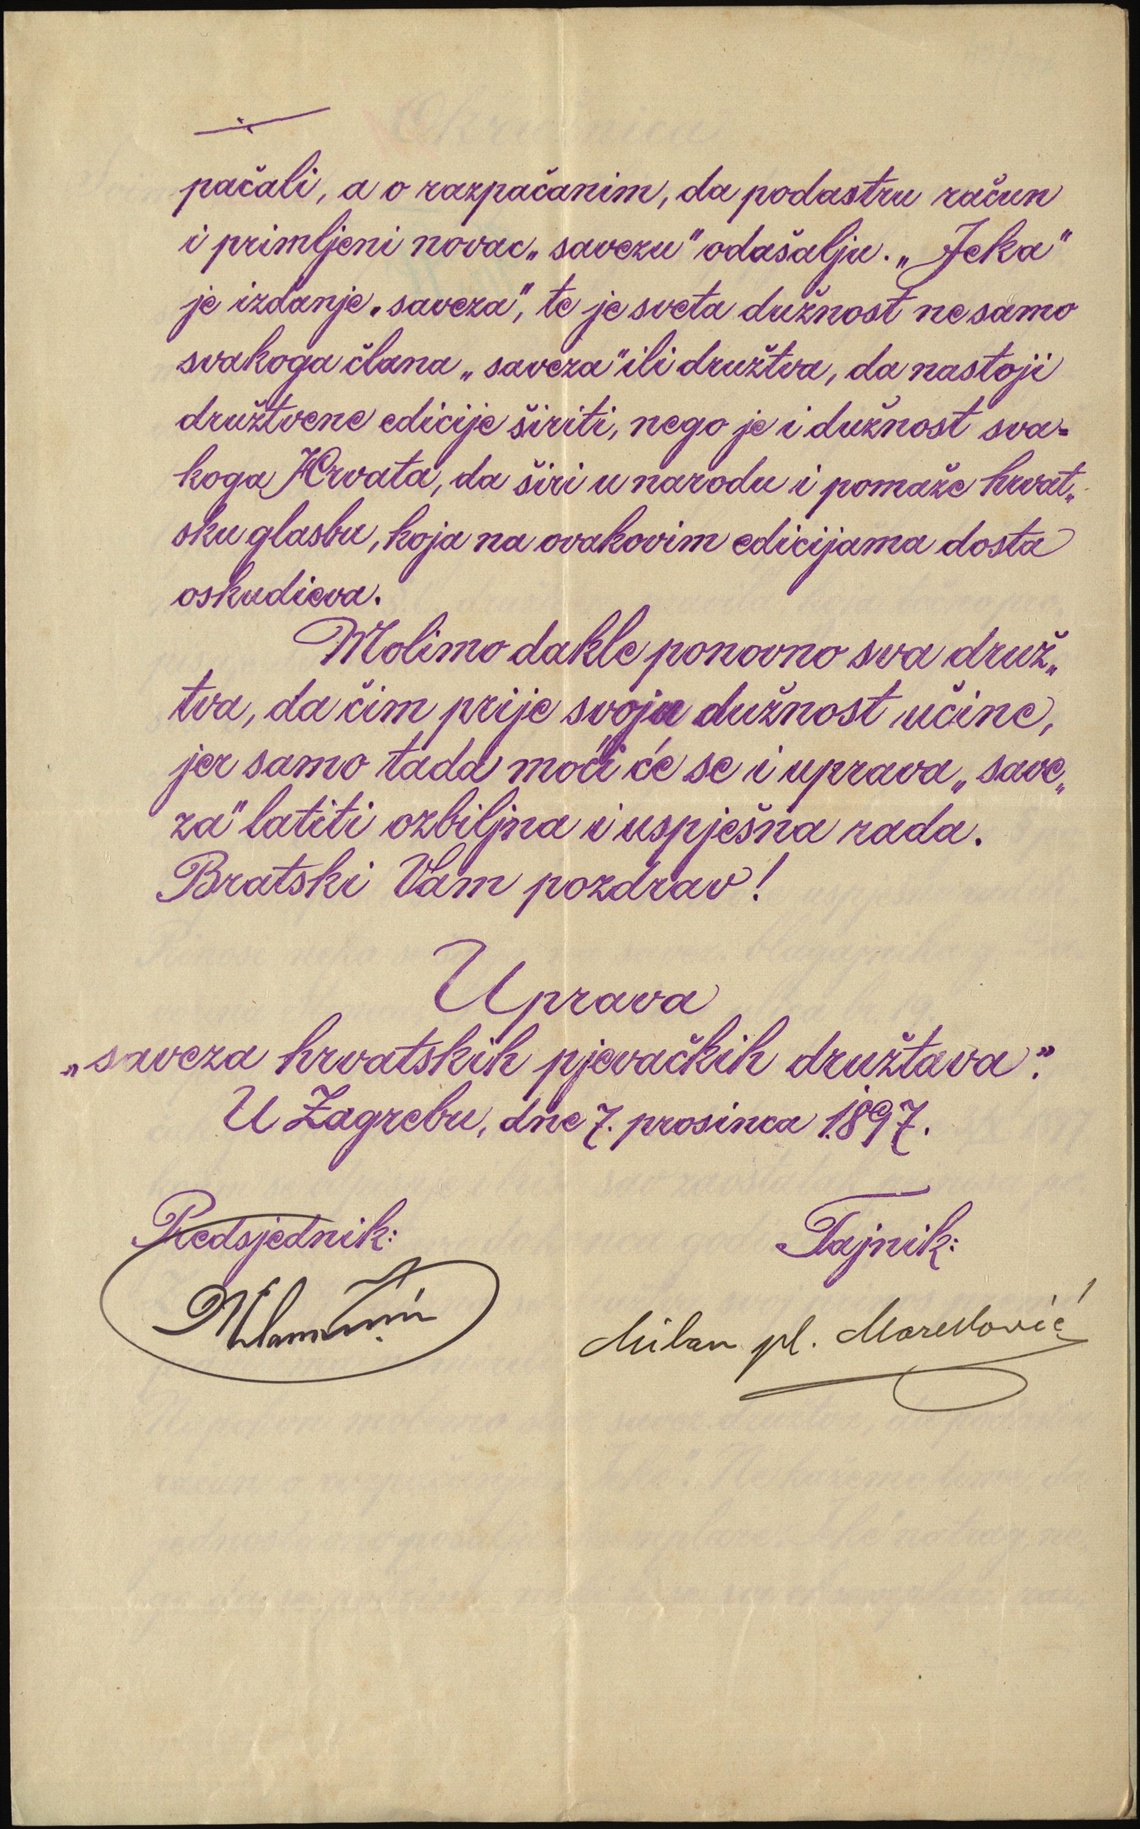 pačali, a o razpačanim, da podastru račun
i primljeni novac „savezu" odašalju. „Jeka"
je izdanje „saveza", te je sveta dužnost ne samo
svakoga člana „saveza" ili družtva, da nastoji
družtvene edicije širiti, nego je i dužnost sva=
koga Hrvata, da širi u narodu i pomaže hrvat„
sku glasbu, koja na ovakovim edicijama dosta
oskudieva.
Molimo dakle ponovno sva druž„
tva, da čim prije svoju dužnost učine,
jer samo tada moći će se i uprava „save„
za" latiti ozbiljna i uspješna rada.
Bratski Vam pozdrav!
Uprava
„saveza hrvatskih pjevačkih družtava".
U Zagrebu, dne 7. prosinca 1897.
Predsjednik:
Tajnik:
Milan pl.